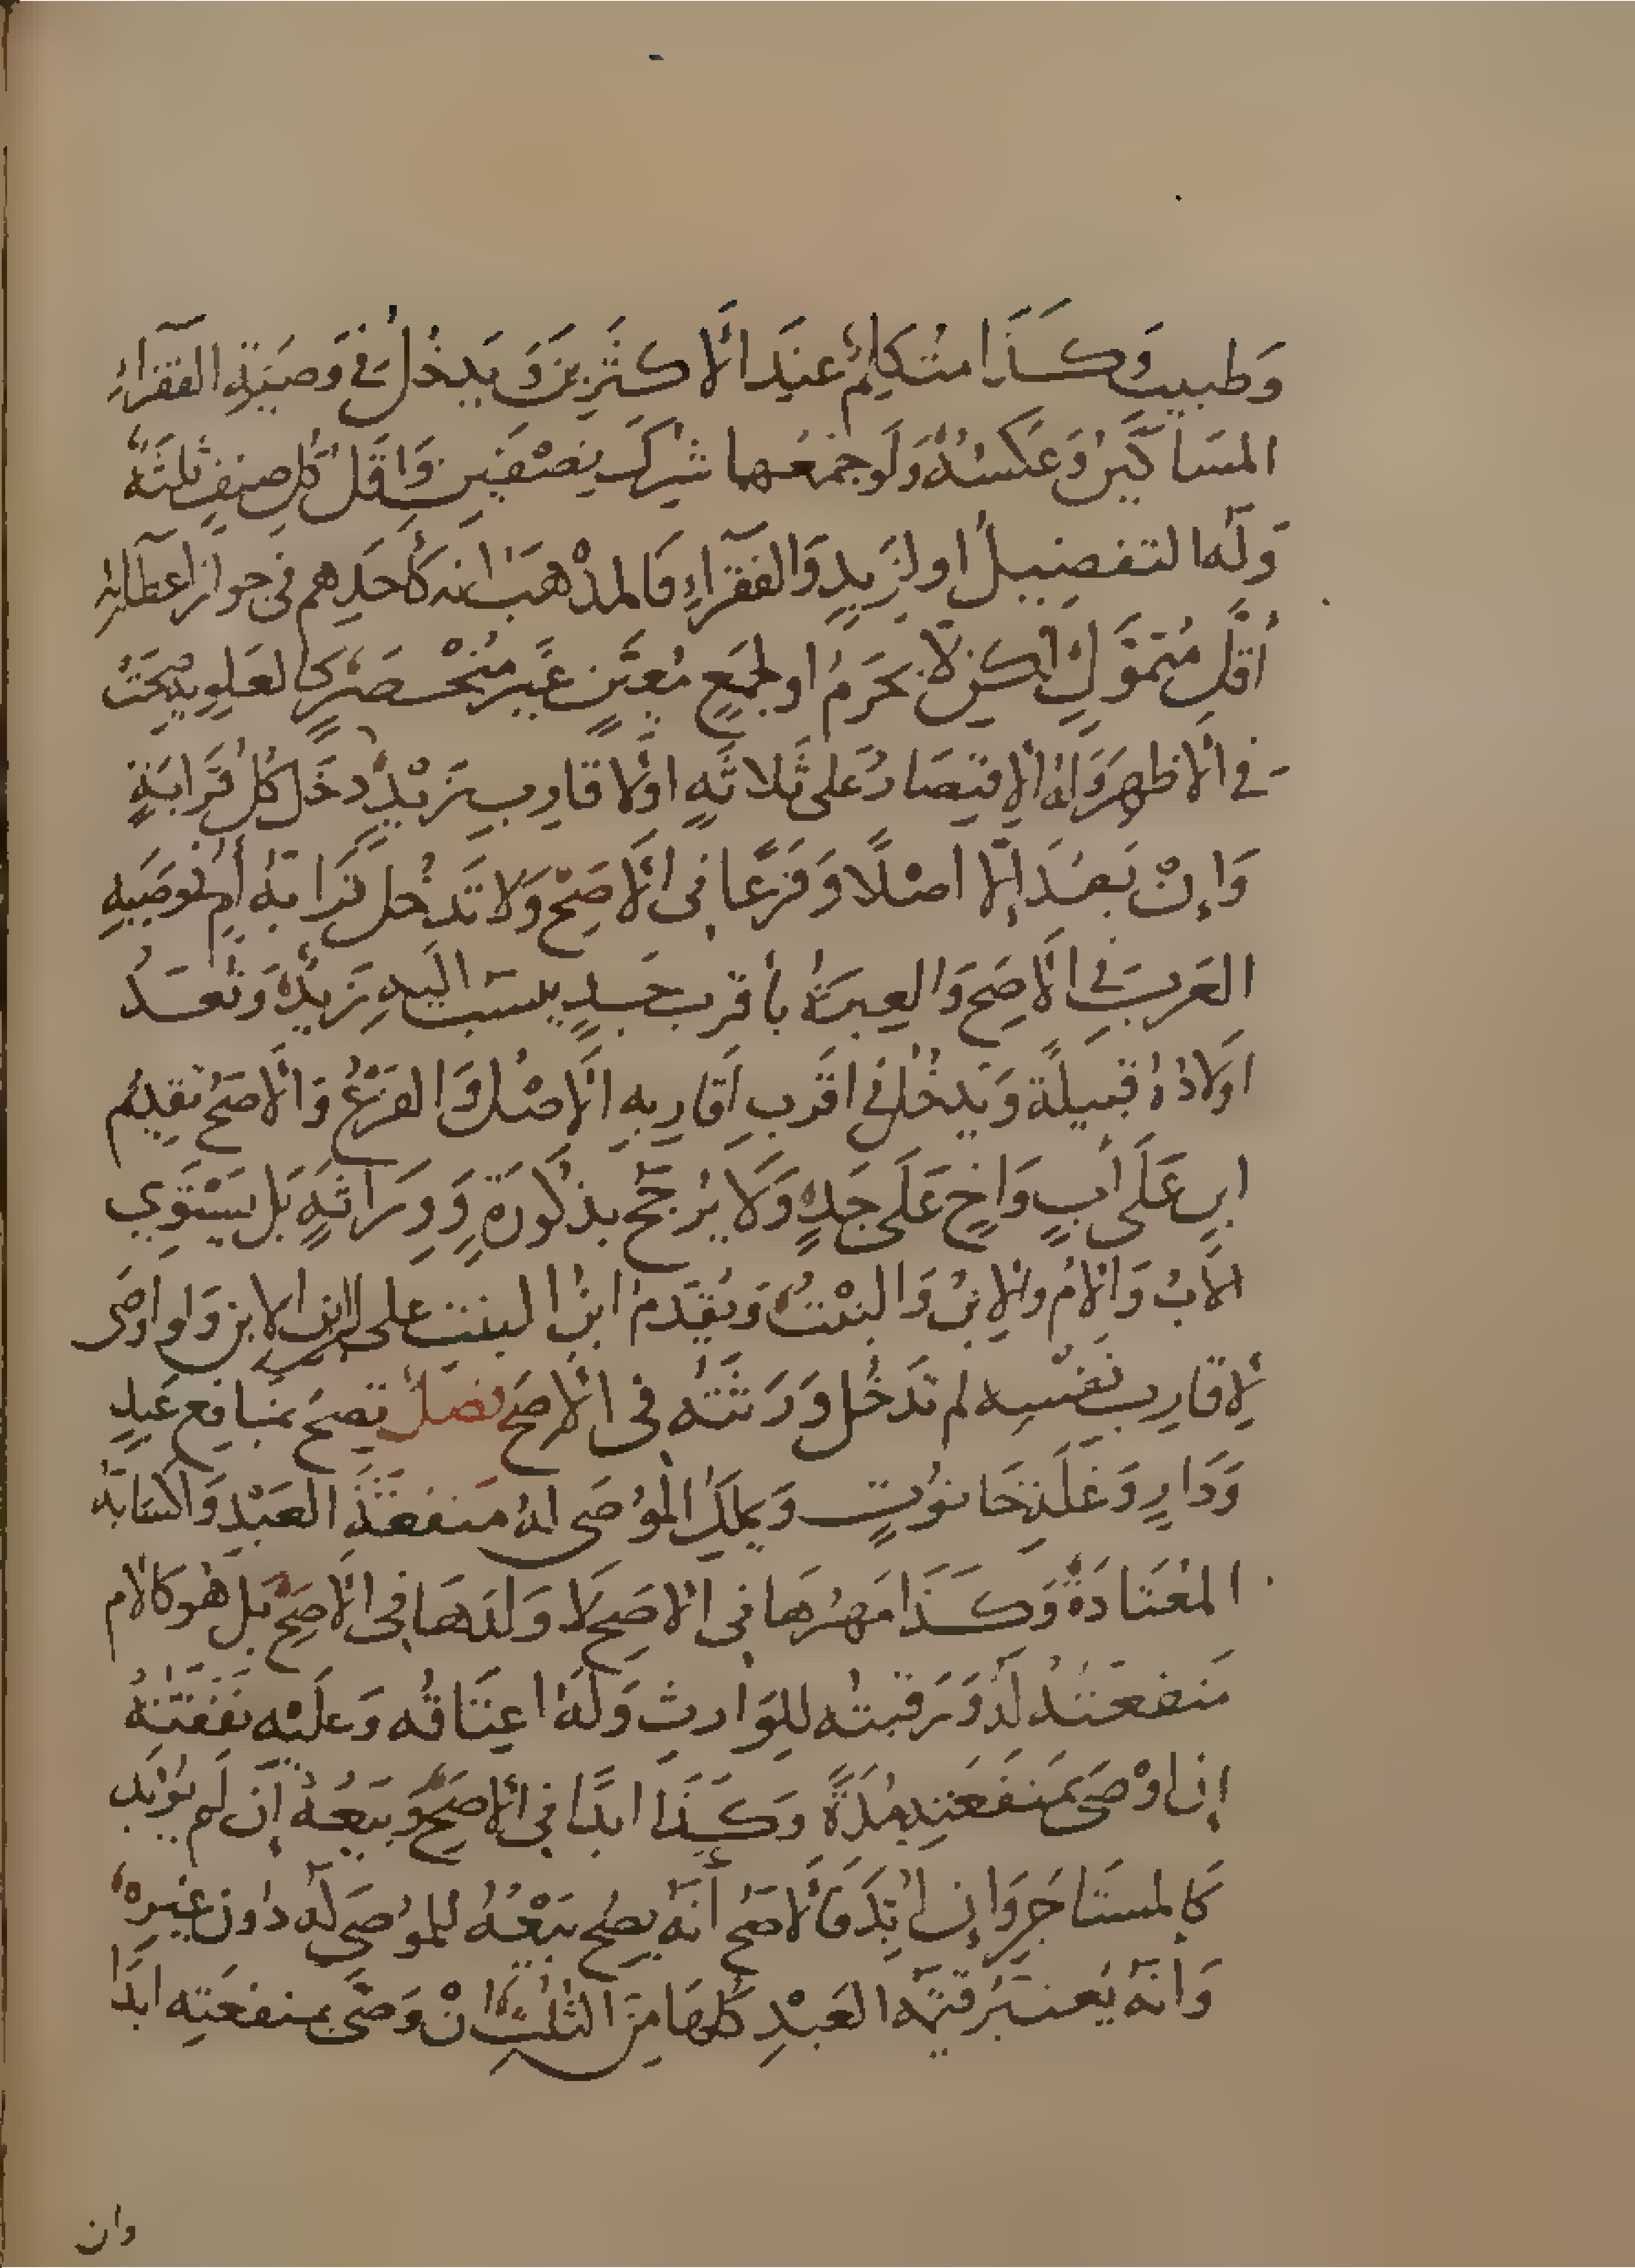 وَطبيب وَكَذَا متكلم عند الأكثرين وَيَدخُلُ في وَصيّة الفقرآءِ
المسَاكينُ وَعَكسُهُ وَلَو جمَعَهما شرك نصْفَين وَاقل كل صنفٍ ثلثة
وَلَه التفضيلُ او لزَيدٍ وَالفقرآءِ فَالمذْهبُ انه كأحدِهم في جواز اعطائه
أقلّ مُتمَوّلٍ لكن لا يحرَمُ او لجمعٍ مُعيّنٍ غير مُنحصَرٍ كالعَلويةِ صحّتْ
في الأظهر وَله الإقتِصَارُ على ثلاثةٍ او لأقارب زيْدٍ دخَل كل قَرابَةٍ
وَإنْ بَعُدَ إلّا اصْلًا وَفرْعًا في الأصَحِّ وَلا تَدخُل قرَابة أمٍ في وصَيةِ
العَرب في الأصحِّ وَالعِبرَة بأقرب جَدٍ ينسب اليه زيدٌ وَتُعَدُّ
اولادُهُ قبيلةً وَيَدخُلُ في اقرَبِ أقاربِهِ الأصْلُ وَالفرْعُ وَالأصَحُّ تقديم
ابنٍ عَلَى أبٍ وَاخٍ عَلَى جَدٍ وَلَا يُرجَّحُ بذكُورَةٍ وَوِرَاثةٍ بَل يَسْتَوِي
الأبُ وَالأمُ والابنُ وَالبنْتُ وَيُقدَّمُ ابنُ البنت على ابن الابن وَلو اوصَى
لِأقاربِ نفْسِه لم تَدخُل وَرَثتُه في الأصَحِّ فصَلٌ تصِحُّ بمنَافع عَبدٍ
وَدَارٍ وَغَلّةِ حَانوُتٍ وَيملكُ الموُصَى لهُ منفعَةَ العَبْدِ وَاكسَابَهُ
المعْتَادَةَ وَكَذَا مَهْرُهَا في الأصَحِ لا وَلدُهَا في الأصَحِّ بَل هُو كالأم
مَنفعَتُهُ لَهُ وَرَقبتُه للوَارثِ وَلَهُ اعتَاقُه وَعَليْه نَفَقتُهُ
إن اوْصَى بمَنفَعَتِهِ مُدَّةً وَكَذَا ابدًا في الأصَحِّ وَبَيعُهُ إن لَم يؤبّد
كَالمستَاجَرِ وَإن ابّدَ فَالأصَحُّ أنّهُ يَصِحّ بَيْعُهُ للموُصَى لَه دُون غيرِه
وَانّهُ يُعتبَرُ قيمَةُ العَبْدِ كلّهَا مِنَ الثلثِ انْ وَصَّى بمنفعَتِه ابَدًا
وان